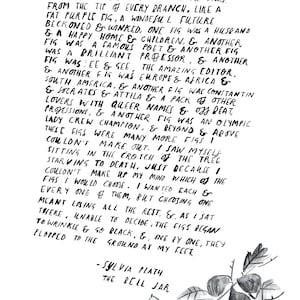 FROM THE TIP OF EVERY BRANCH, LIKE A
FAT PURPLE FIG, A WONDERFUL FUTURE
BECKONED & WINKED. ONE FIG WAS A HUSBAND
& A HAPPY HOME & CHILDREN, & ANOTHER
FIG WAS A FAMOUS POET & ANOTHER FIG
WAS A BRILLIANT PROFESSOR, & ANOTHER
FIG WAS EE & GEE, THE AMAZING EDITOR,
& ANOTHER FIG WAS EUROPE & AFRICA &
SOUTH AMERICA, & ANOTHER FIG WAS CONSTANTIN
& SOCRATES & ATTILA & A PACK OF OTHER
LOVERS WITH QUEER NAMES & OFFBEAT
PROFESSIONS, & ANOTHER FIG WAS AN OLYMPIC
LADY CREW CHAMPION, & BEYOND & ABOVE
THESE FIGS WERE MANY MORE FIGS I
COULDN'T MAKE OUT. I SAW MYSELF
SITTING IN THE CROTCH OF THE TREE
STARVING TO DEATH, JUST BECAUSE I
COULDN'T MAKE UP MY MIND WHICH OF THE
FIGS I WOULD CHOOSE. I WANTED EACH &
EVERY ONE OF THEM, BUT CHOOSING ONE
MEANT LOSING ALL THE REST, &, AS I SAT
THERE, UNABLE TO DECIDE, THE FIGS BEGAN
TO WRINKLE & GO BLACK, &, ONE BY ONE, THEY
PLOPPED TO THE GROUND AT MY FEET.
-SYLVIA PLATH
THE BELL JAR